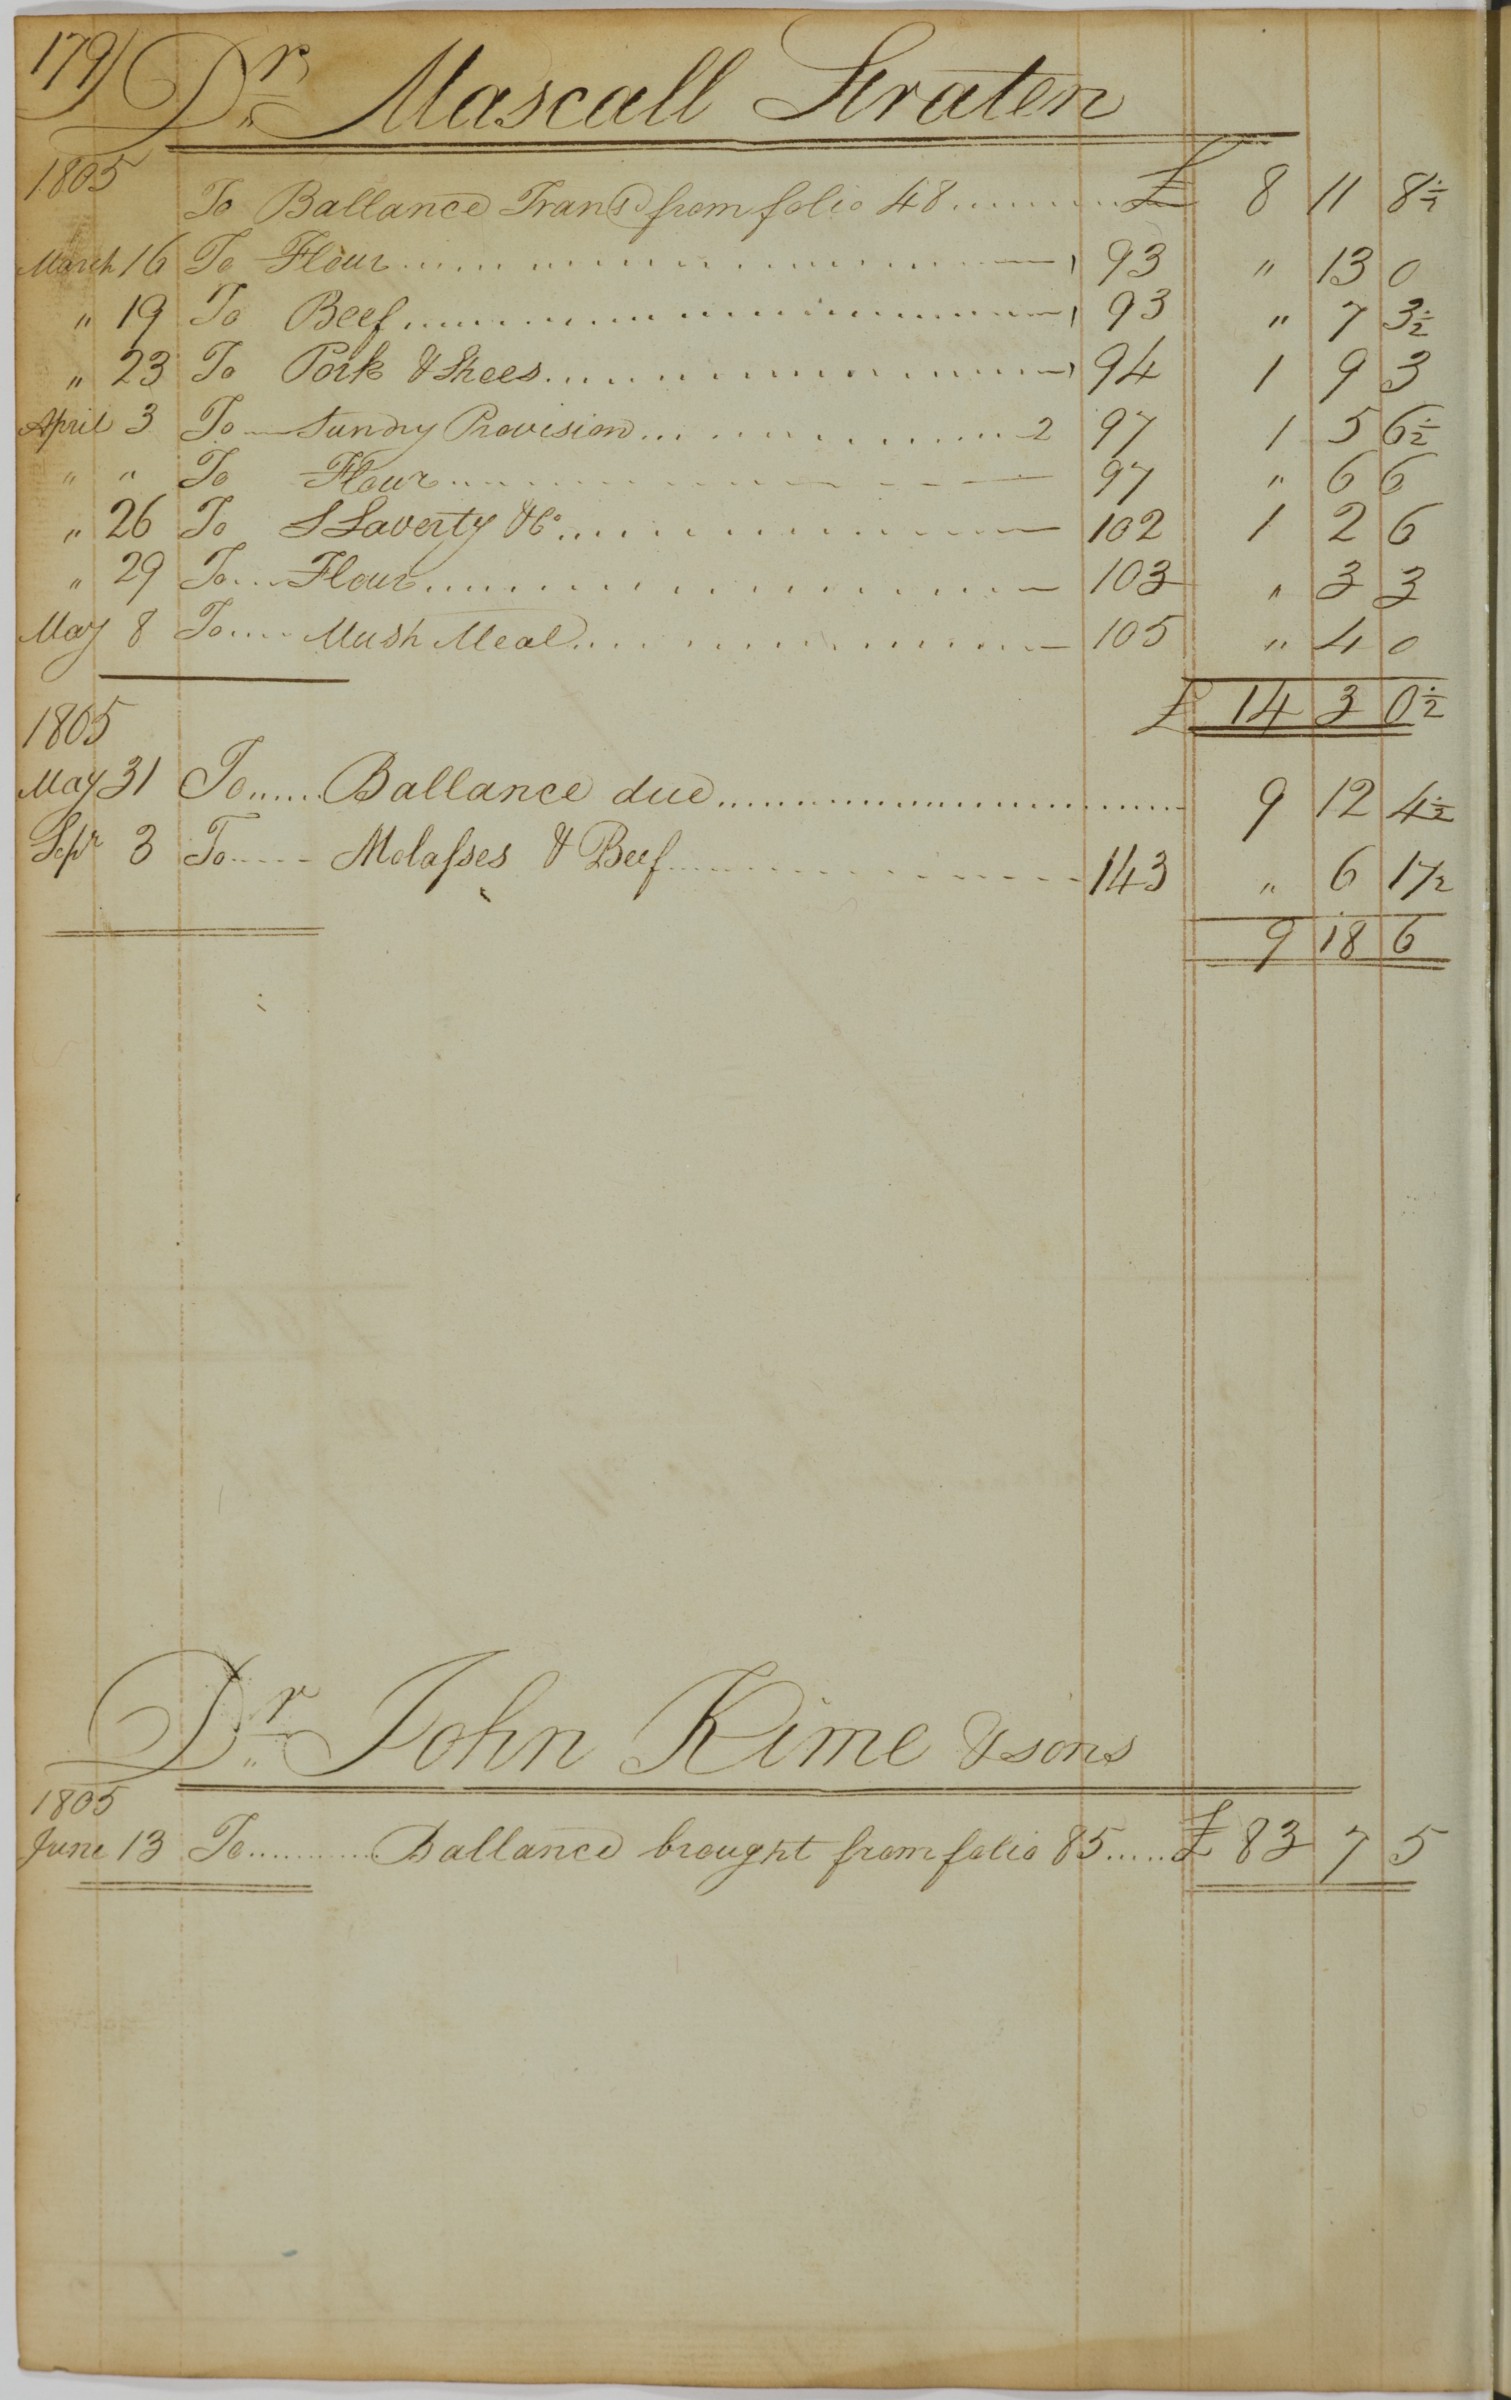 179) Dr Mascall Straten
1805
To Ballance Transd from folio 48 £ 8 11 8½
March 16 To Flour 93 " 13 0
" 19 To Beef 93 " 7 3½
" 23 To Pork & Shoes 94 1 9 3
April 3 To Sundry Provision 2 97 1 5 6½
" " To Flour 97 " 6 6
" 26 To S Laverty & Co 102 1 2 6
" 29 To Flour 103 " 3 3
May 8 To Mush Meal 105 " 4 0
£ 14 3 0½
1805
May 31 To Ballance due 9 12 4½
Sepr 3 To Molasses & Beef 143 " 6 1½
9 18 6
Dr John Kime & sons
1805
June 13 To Ballance brought from folio 85 £ 83 7 5